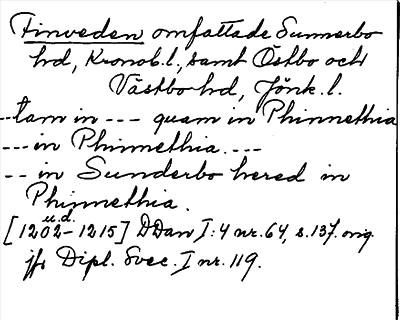 Finveden omfattade Sunnerbo
hd, Kronob.l., samt Östbo och
Västbo hd, Jönk. l.
--tam in --- quam in Phinnethia
--- in Phinnethia. ---
-- in Sunderbo hered in
Phinnethia.
u.d.
[1202-1215] DDan I:4 nr. 64, s. 137. orig.
jfr Dipl. Svec. I nr. 119.